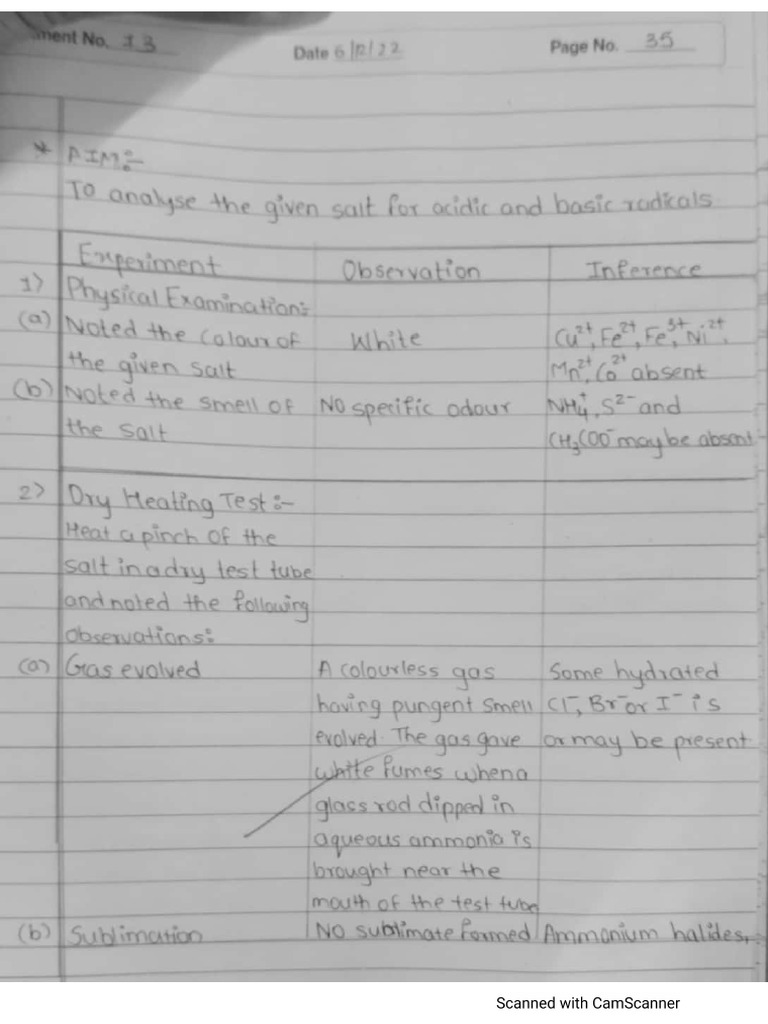 ment No. 13 Date 6/12/22 Page No. 35
* AIM:-
To analyse the given salt for acidic and basic radicals
Experiment Observation Inference
1) Physical Examination:-
(a) Noted the colour of White Cu²⁺, Fe²⁺, Fe³⁺, Ni²⁺,
the given salt Mn²⁺, Co²⁺ absent
(b) Noted the smell of No specific odour NH₄⁺, S²⁻ and
the salt CH₃COO⁻ may be absent
2) Dry Heating Test:-
Heat a pinch of the
salt in a dry test tube
and noted the following
observations:
(a) Gas evolved A colourless gas Some hydrated
having pungent smell Cl⁻, Br⁻ or I⁻ is
evolved. The gas gave or may be present
white fumes when a
glass rod dipped in
aqueous ammonia is
brought near the
mouth of the test tube
(b) Sublimation No sublimate formed Ammonium halides,
Scanned with CamScanner